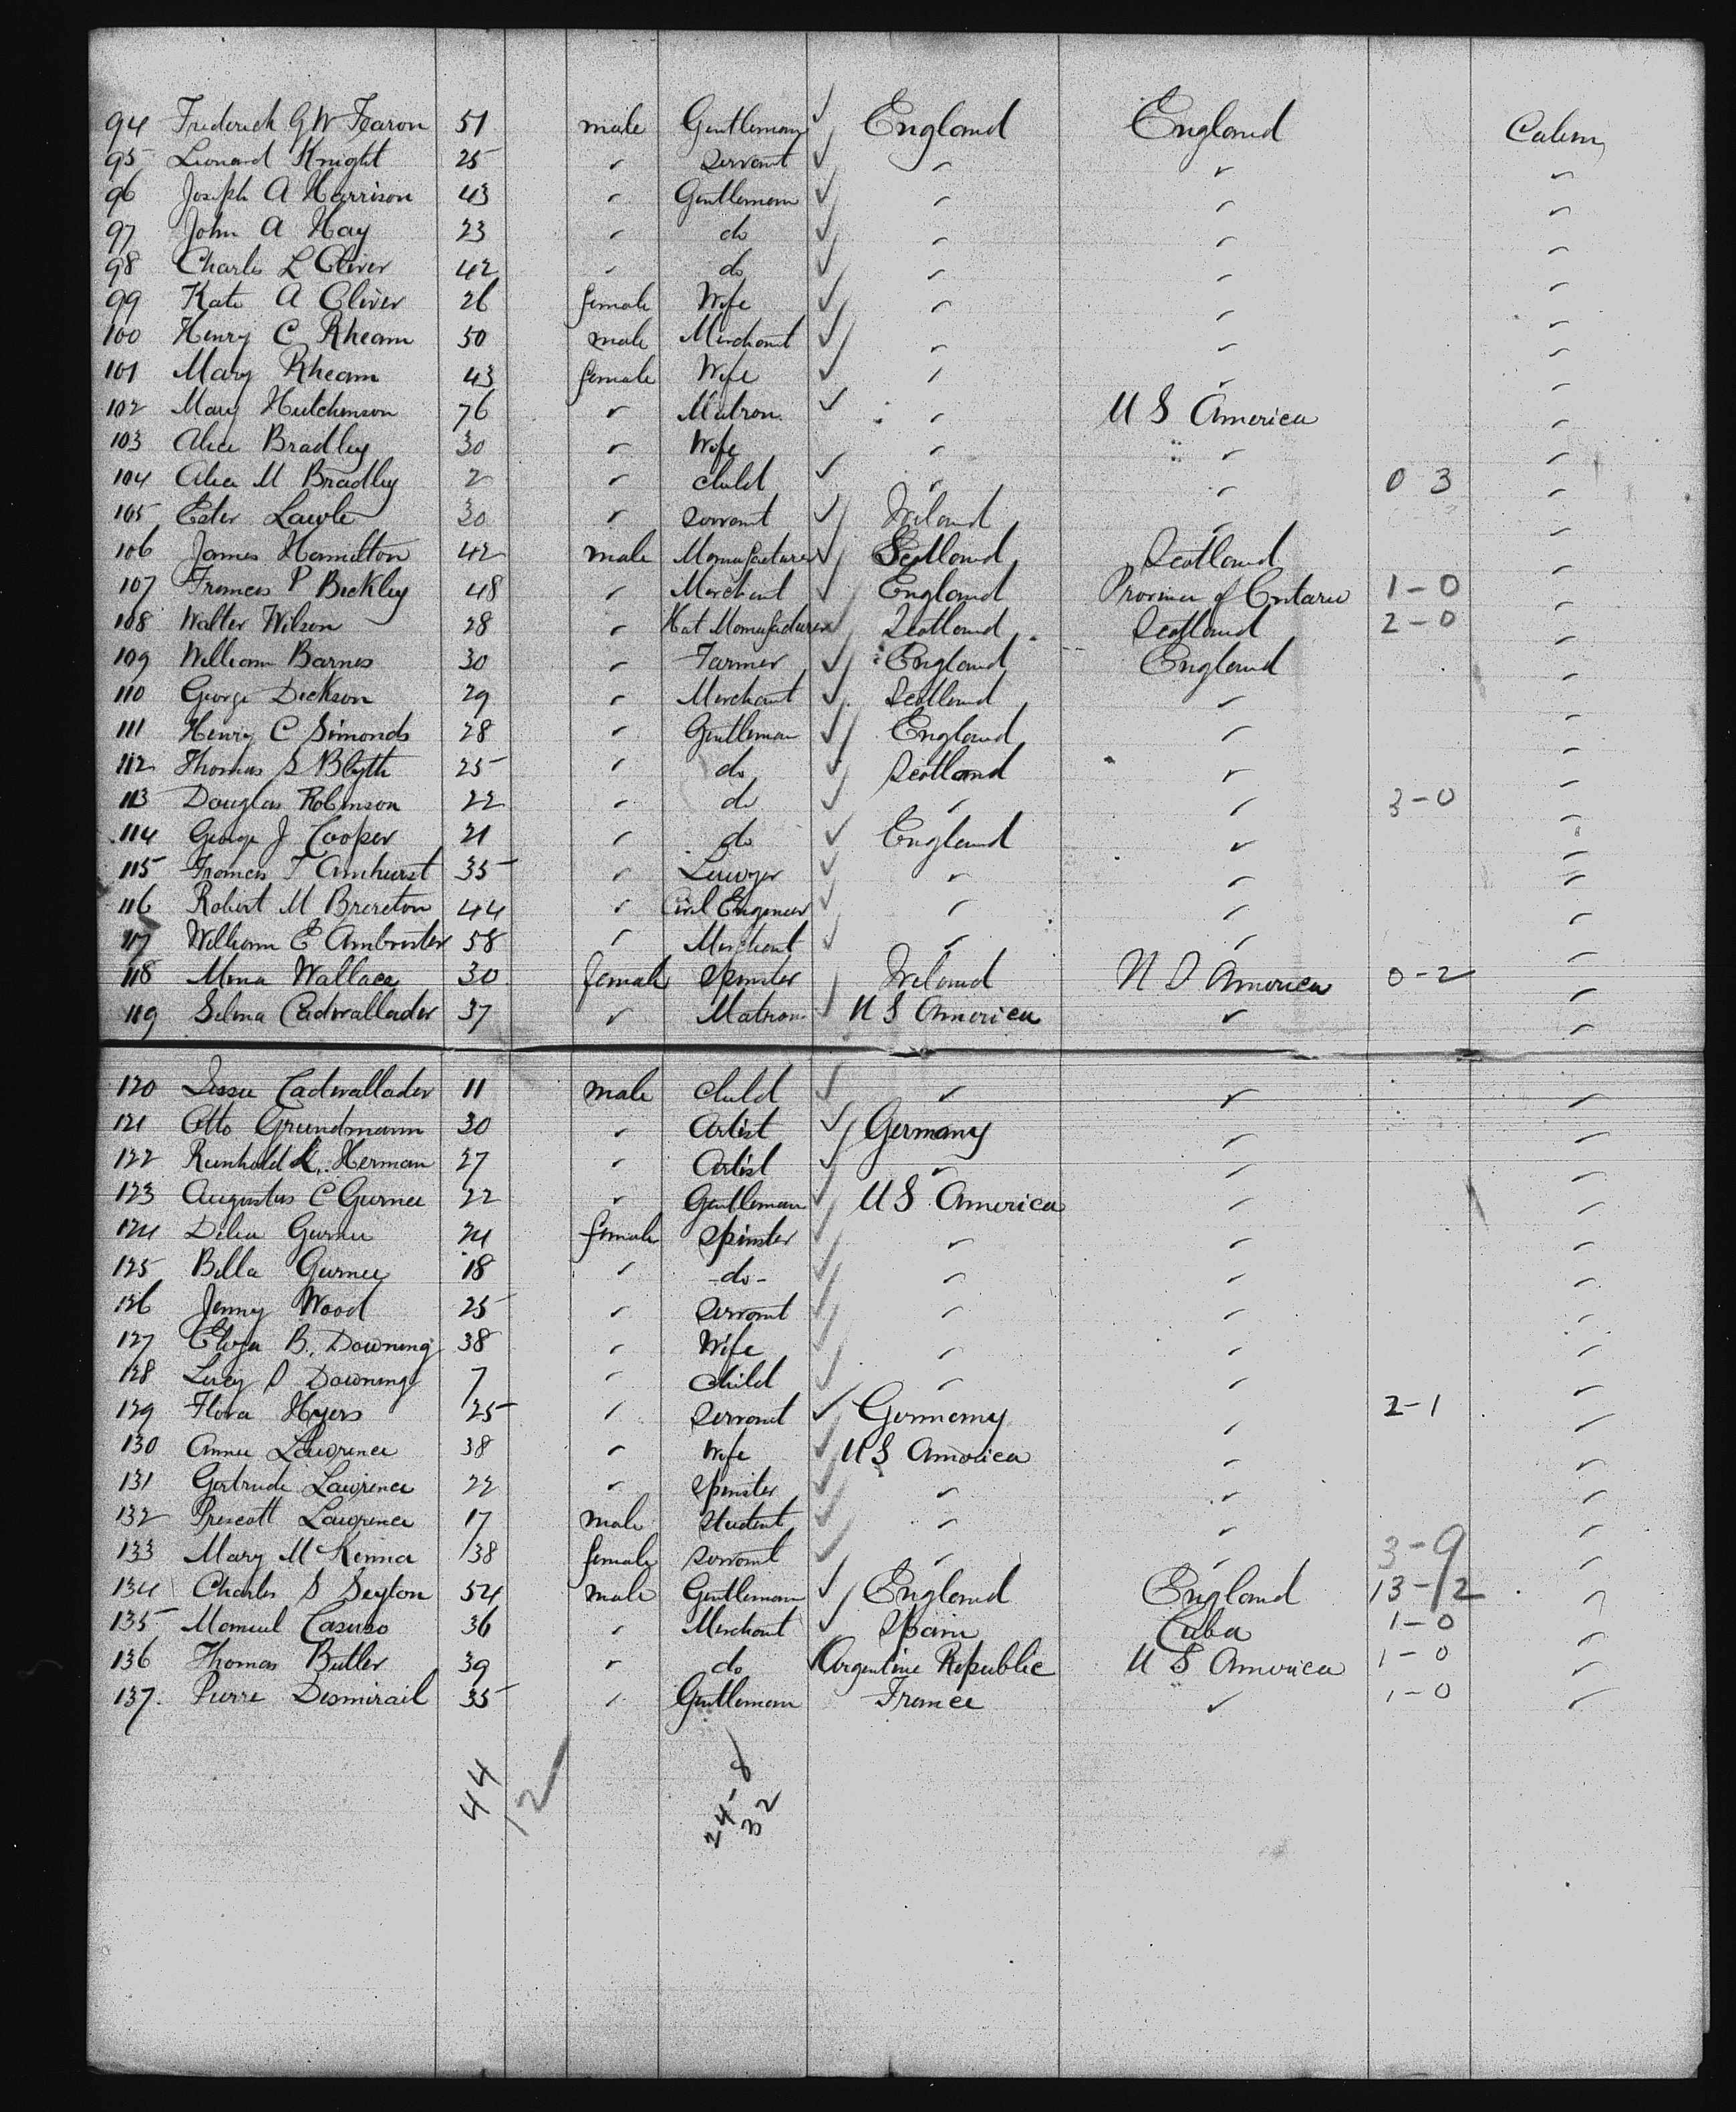 94 Frederick G W Fearon 51 male Gentleman ✓ England England Cabin
95 Leonard Knight 25 " Servant ✓ " " "
96 Joseph A Harrison 43 " Gentleman ✓ " " "
97 John A Hay 23 " do ✓ " " "
98 Charles L Oliver 42 " do ✓ " " "
99 Kate A Oliver 26 female Wife ✓ " " "
100 Henry C Rheam 50 male Merchant ✓ " " "
101 Mary Rheam 43 female Wife ✓ " " "
102 Mary Hutchinson 76 " Matron ✓ " U S America "
103 Alice Bradley 30 " Wife " " "
104 Alice M Bradley 2 " Child ✓ " " 0 3 "
105 Ester Lawle 30 " Servant ✓ Ireland " "
106 James Hamilton 42 male Manufacturer ✓ Scotland Scotland "
107 Frances P Beckley 48 " Merchant ✓ England Province of Ontario 1-0 "
108 Walter Wilson 28 " Hat Manufacturer ✓ Scotland Scotland 2-0 "
109 William Barnes 30 " Farmer ✓ England England "
110 George Dickson 29 " Merchant ✓ Scotland " "
111 Henry C Simonds 28 " Gentleman ✓ England " "
112 Thomas S Blyth 25 " do ✓ Scotland " "
113 Douglas Robinson 22 " do ✓ " " 3-0 "
114 George J Cooper 21 " do ✓ England " "
115 Frances T Amhurst 35 " Lawyer ✓ " " "
116 Robert M Brereton 44 " Civil Engineer ✓ " " "
117 William E Ambrister 58 " Merchant ✓ " " "
118 Mina Wallace 30 female Spinster Ireland U S America 0-2 "
119 Selina Cadwallader 37 " Matron ✓ U S America " "
120 Jessie Cadwallader 11 male Child ✓ " " "
121 Otto Grundmann 30 " Artist ✓ Germany " "
122 Reinhold L. Herman 27 " Artist ✓ " " "
123 Augustus C Gurnee 22 " Gentleman ✓ U S America " "
124 Delia Gurnee 24 female Spinster ✓ " " "
125 Bella Gurnee 18 " -do- ✓ " " "
126 Jenny Wood 25 " Servant ✓ " " "
127 Eliza B. Downing 38 " Wife ✓ " " "
128 Lucy D Downing 7 " Child ✓ " " "
129 Flora Hyers 25 " Servant ✓ Germany " 2-1 "
130 Annie Lawrence 38 " Wife ✓ U S America " "
131 Gertrude Lawrence 22 " Spinster ✓ " " "
132 Prescott Lawrence 17 male Student ✓ " " "
133 Mary McKenna 38 female Servant ✓ " " 3-9 "
134 Charles S Seyton 54 male Gentleman ✓ England England 13-12 "
135 Manuel Casuso 36 " Merchant ✓ Spain Cuba 1-0 "
136 Thomas Butler 39 " do Argentine Republic U S America 1-0 "
137. Pierre Desmirail 35 " Gentleman France " 1-0 "
44
12
24-8
32